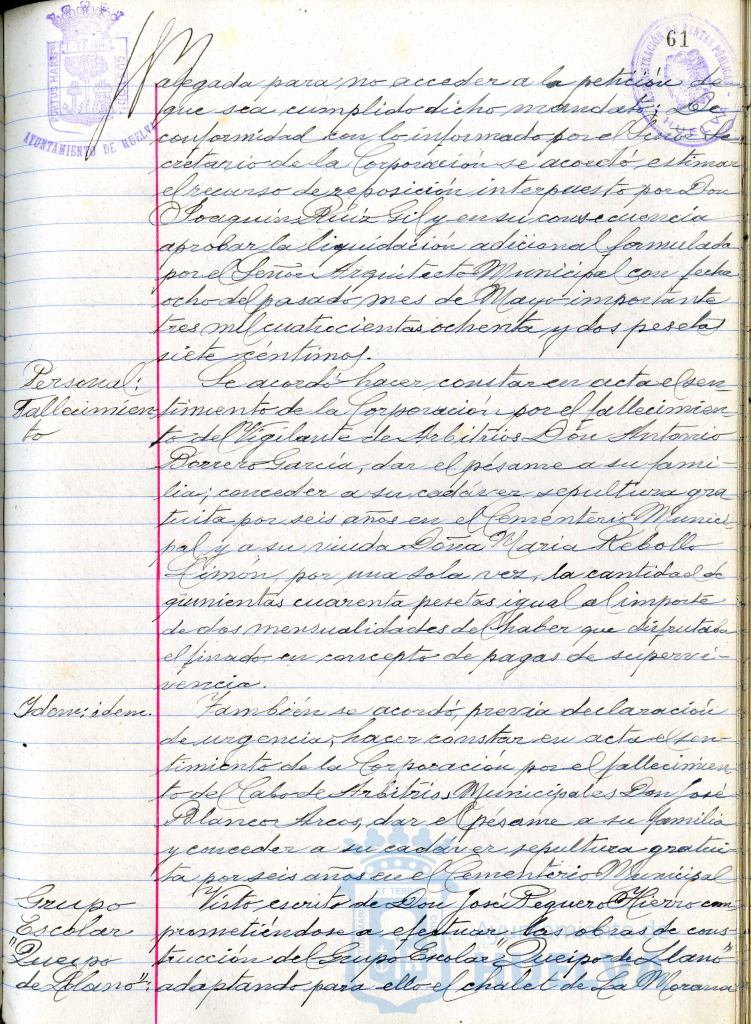 61
AYUNTAMIENTO DE HUELVA
alegada para no acceder a la petición de
que sea cumplido dicho mandato; De
conformidad con lo informado por el Señor Se
cretario de la Corporación se acordó estimar
el recurso de reposición interpuesto por Don
Joaquín Ruiz Gil y en su consecuencia
aprobar la liquidación adicional formulada
por el Señor Arquitecto Municipal con fecha
ocho del pasado mes de Mayo importante
tres mil cuatrocientas ochenta y dos pesetas
siete céntimos.
Personal:
Fallecimien
to
Se acordó hacer constar en acta el sen-
timiento de la Corporación por el fallecimien-
to del Vigilante de Arbitrios Don Antonio
Borrero García, dar el pésame a su fami-
lia; conceder a su cadáver sepultura gra-
tuita por seis años en el Cementerio Munici-
pal y a su viuda Doña María Rebollo
Limón, por una sola vez, la cantidad de
quinientas cuarenta pesetas igual al importe
de dos mensualidades del haber que disfrutaba
el finado en concepto de pagas de supervi-
vencia.
Idem: idem.
También se acordó, previa declaración
de urgencia, hacer constar en acta el sen-
timiento de la Corporación por el fallecimien-
to del Cabo de Arbitrios Municipales Don José
Blanco Arcos, dar el pésame a su familia
y conceder a su cadáver sepultura gratui-
ta por seis años en el Cementerio Municipal
Grupo
Escolar
"Queipo
de Llano":
Visto escrito de Don José Reguero Hierro com
prometiéndose a efectuar las obras de cons-
trucción del Grupo Escolar "Queipo de Llano"
adaptando para ello el chalet de La Morana
Ayuntamiento de
HUELVA